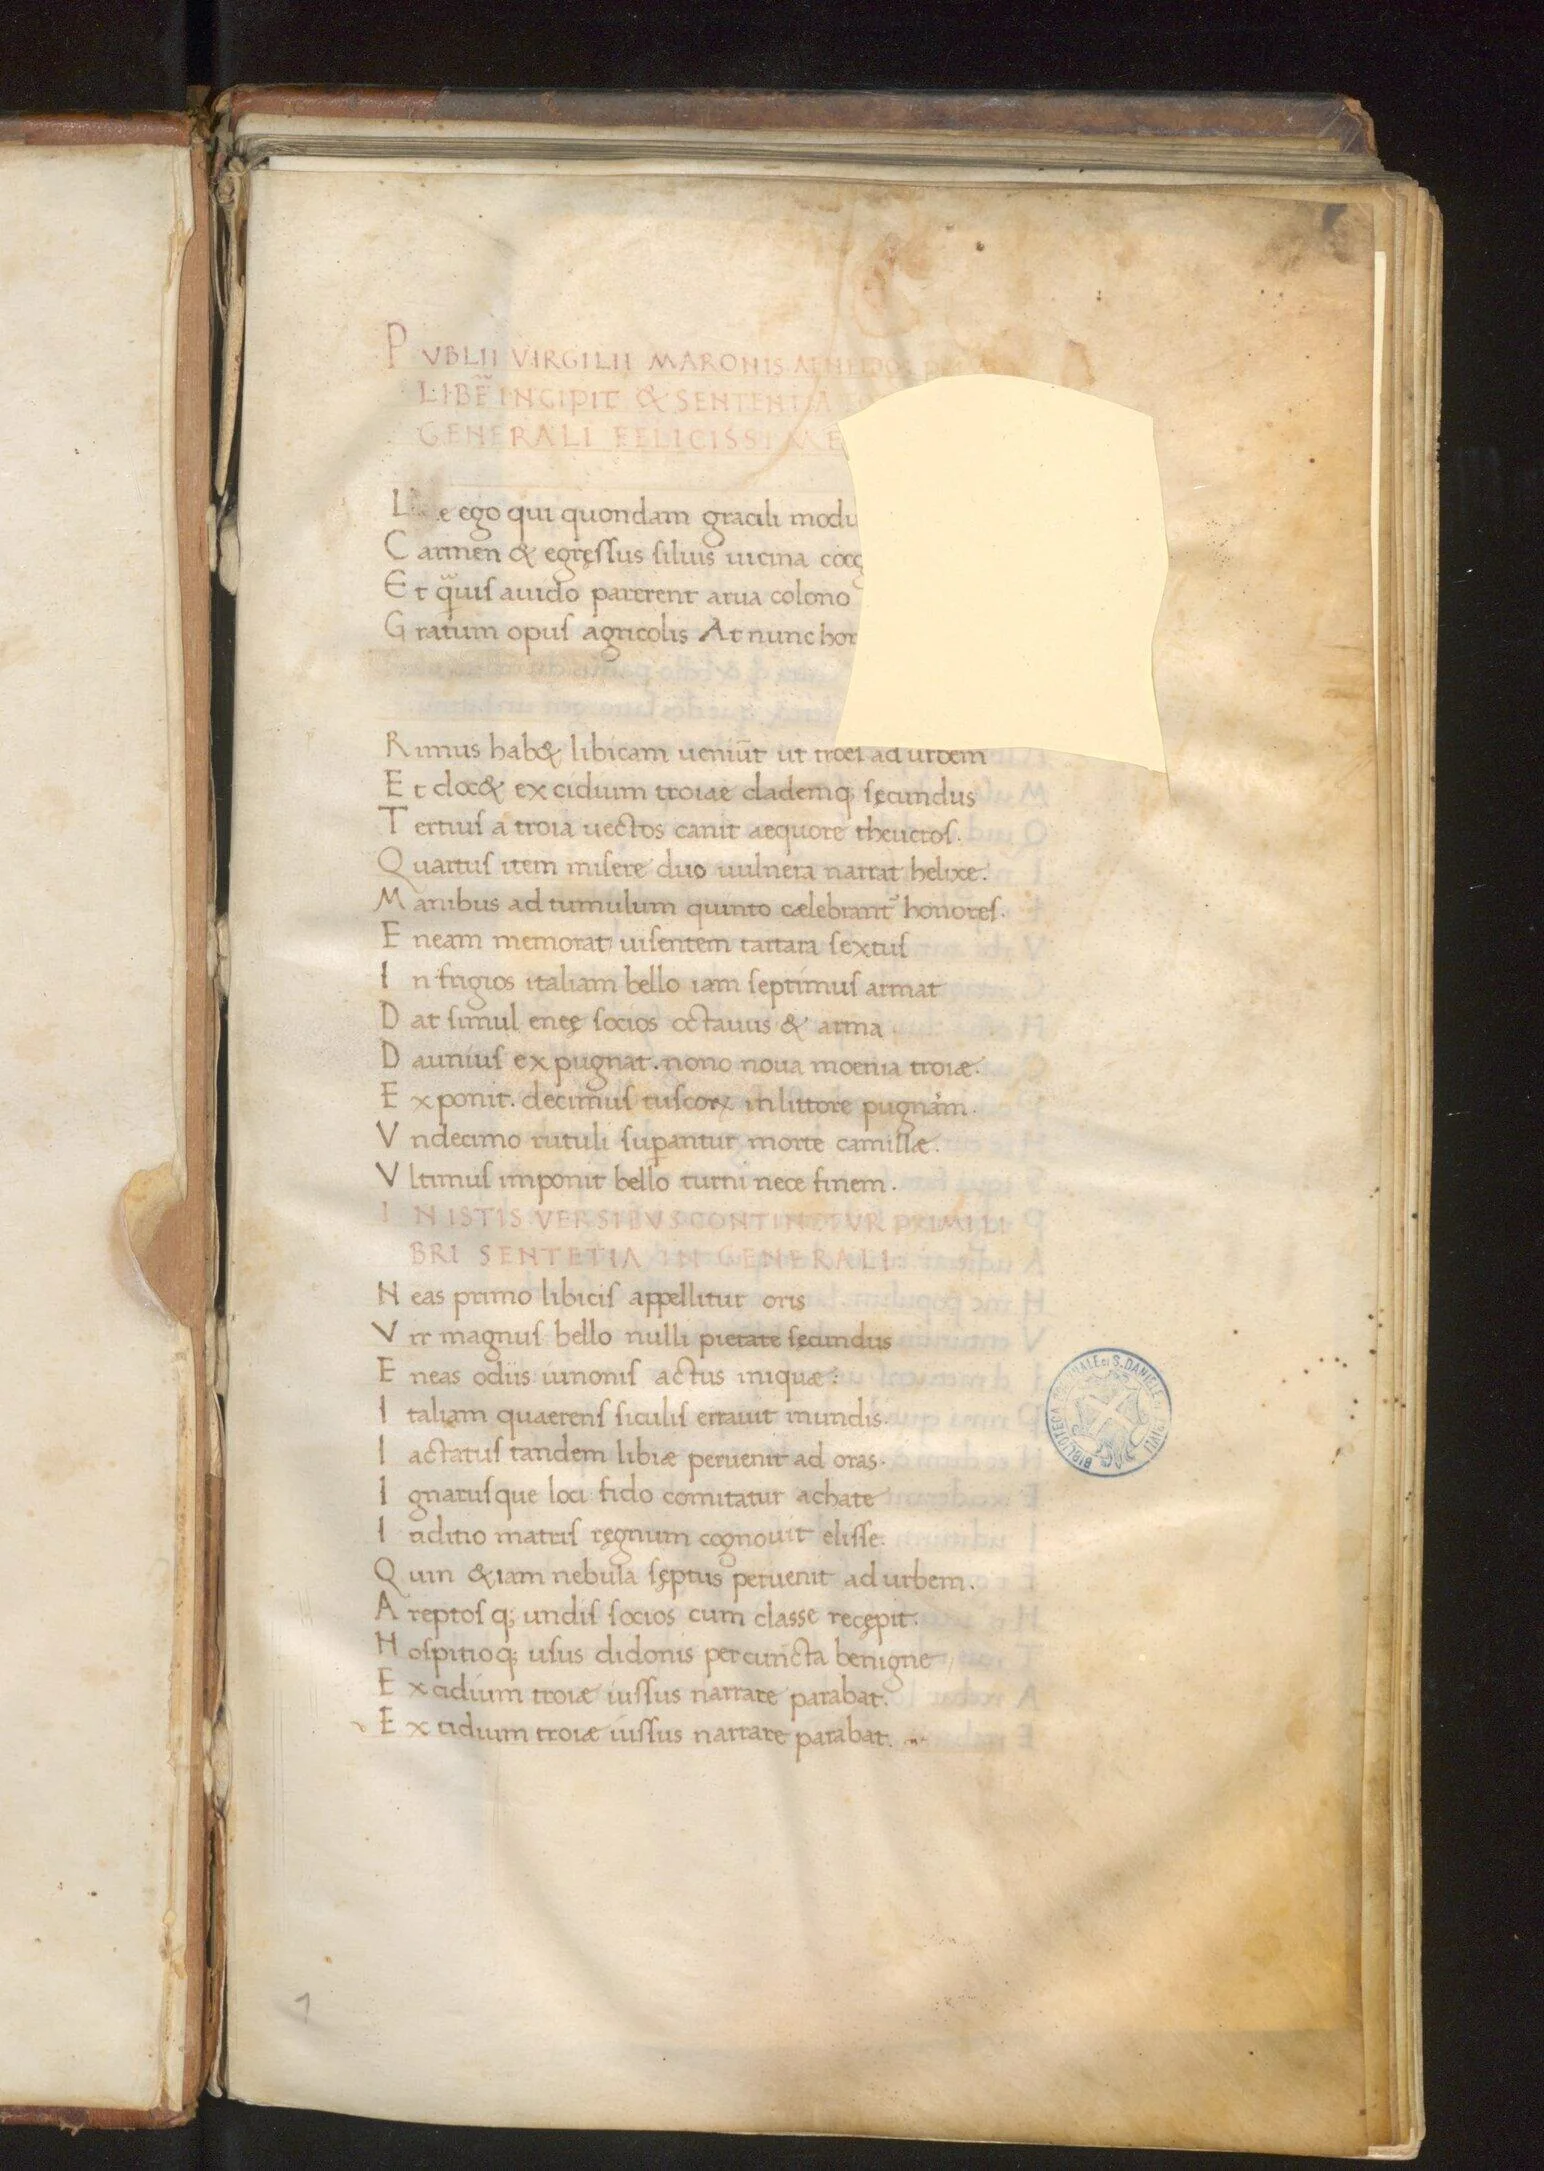 PVBLII VIRGILII MARONIS AENEIDOS
LIBER̃ INCIPIT & SENTENTIA
GENERALI FELICISSIME
Ille ego qui quondam gracili modu
Carmen & egręssus siluis uicina coeg
Et quãuis auido parerent arua colono
Gratum opus agricolis At nunc hor
Rimus hab& libicam ueniūt ut troes ad urbem
Et doc& excidium troiae clademq; sęcundus
Tertius a troia uectos canit aequore theucros.
Quartus item misere duo uulnera narrat helixe.
Manibus ad tumulum quinto cælebrant honores.
Eneam memorat uisentem tartara sextus
In frigios italiam bello iam septimus armat
Dat simul eneę socios octauus & arma
Daunius expugnat. nono noua moenia troiæ.
Exponit. decimus tuscoꝝ in littore pugnam.
Vndecimo rutuli suꝑantur morte camillæ.
Vltimus imponit bello turni nece finem.
IN ISTIS VERSIBVS CONTINETVR PRIMI LI
BRI SENTETIA IN GENERALI
Neas primo libicis appellitur oris
Vir magnus bello nulli pietate sęcundus
Eneas odiis iunonis actus iniquæ:
Italiam quaerens siculis errauit inundis.
Iactatus tandem libiæ peruenit ad oras.
Ignarusque loci fido comitatur achate
Iuditio matris ręgnum cognouit elisse.
Quin &iam nebula sęptus peruenit ad urbem.
Areptosq; undis socios cum classe recępit.
Hospitioq; usus didonis per cuncta benigne
Excidium troiæ iussus narrare parabat.
Excidium troiæ iussus narrare parabat.
BIBLIOTECA COMUNALE DI S. DANIELE DEL FRIULI
1